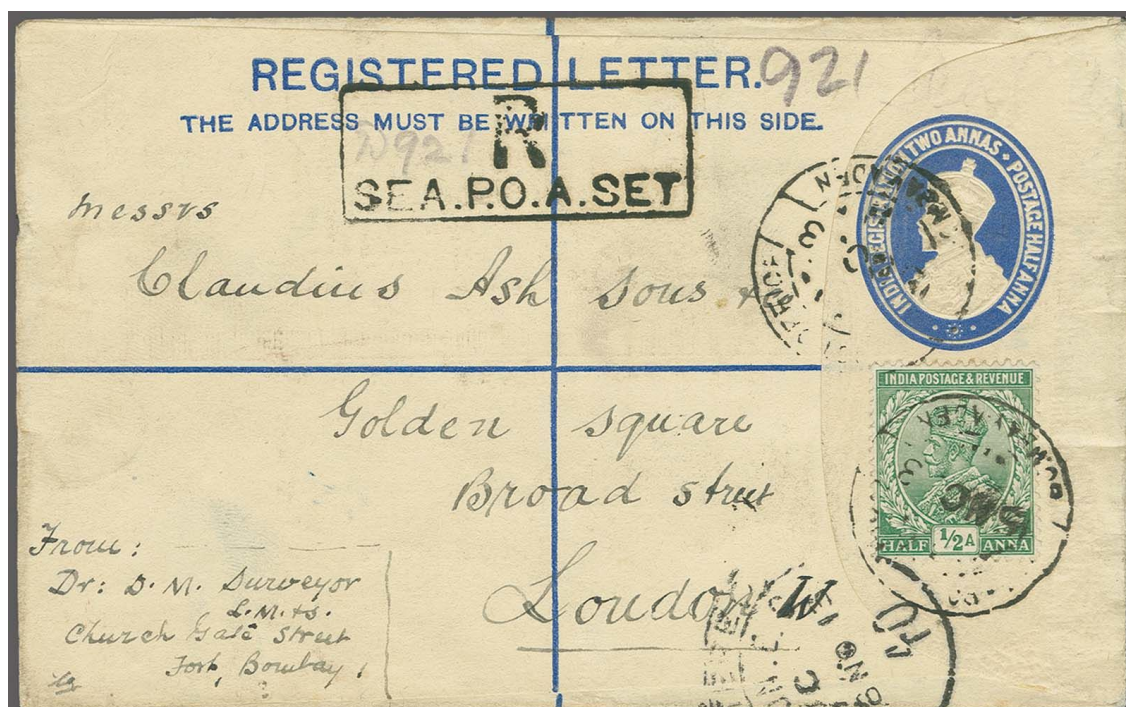 REGISTERED LETTER.
921
THE ADDRESS MUST BE WRITTEN ON THIS SIDE.
R
D921
SEA.P.O.A.SET
INDIA REGISTRATION TWO ANNAS · POSTAGE HALF ANNA
ADEN
Messrs
Claudius Ash Sons &
INDIA POSTAGE & REVENUE
Golden Square
Broad street
BOMBAY ADEN
HALF 1/2 A ANNA
From:
Dr: D. M. Surveyor
L.M.&S.
Church Gate Street
Fort, Bombay
London W